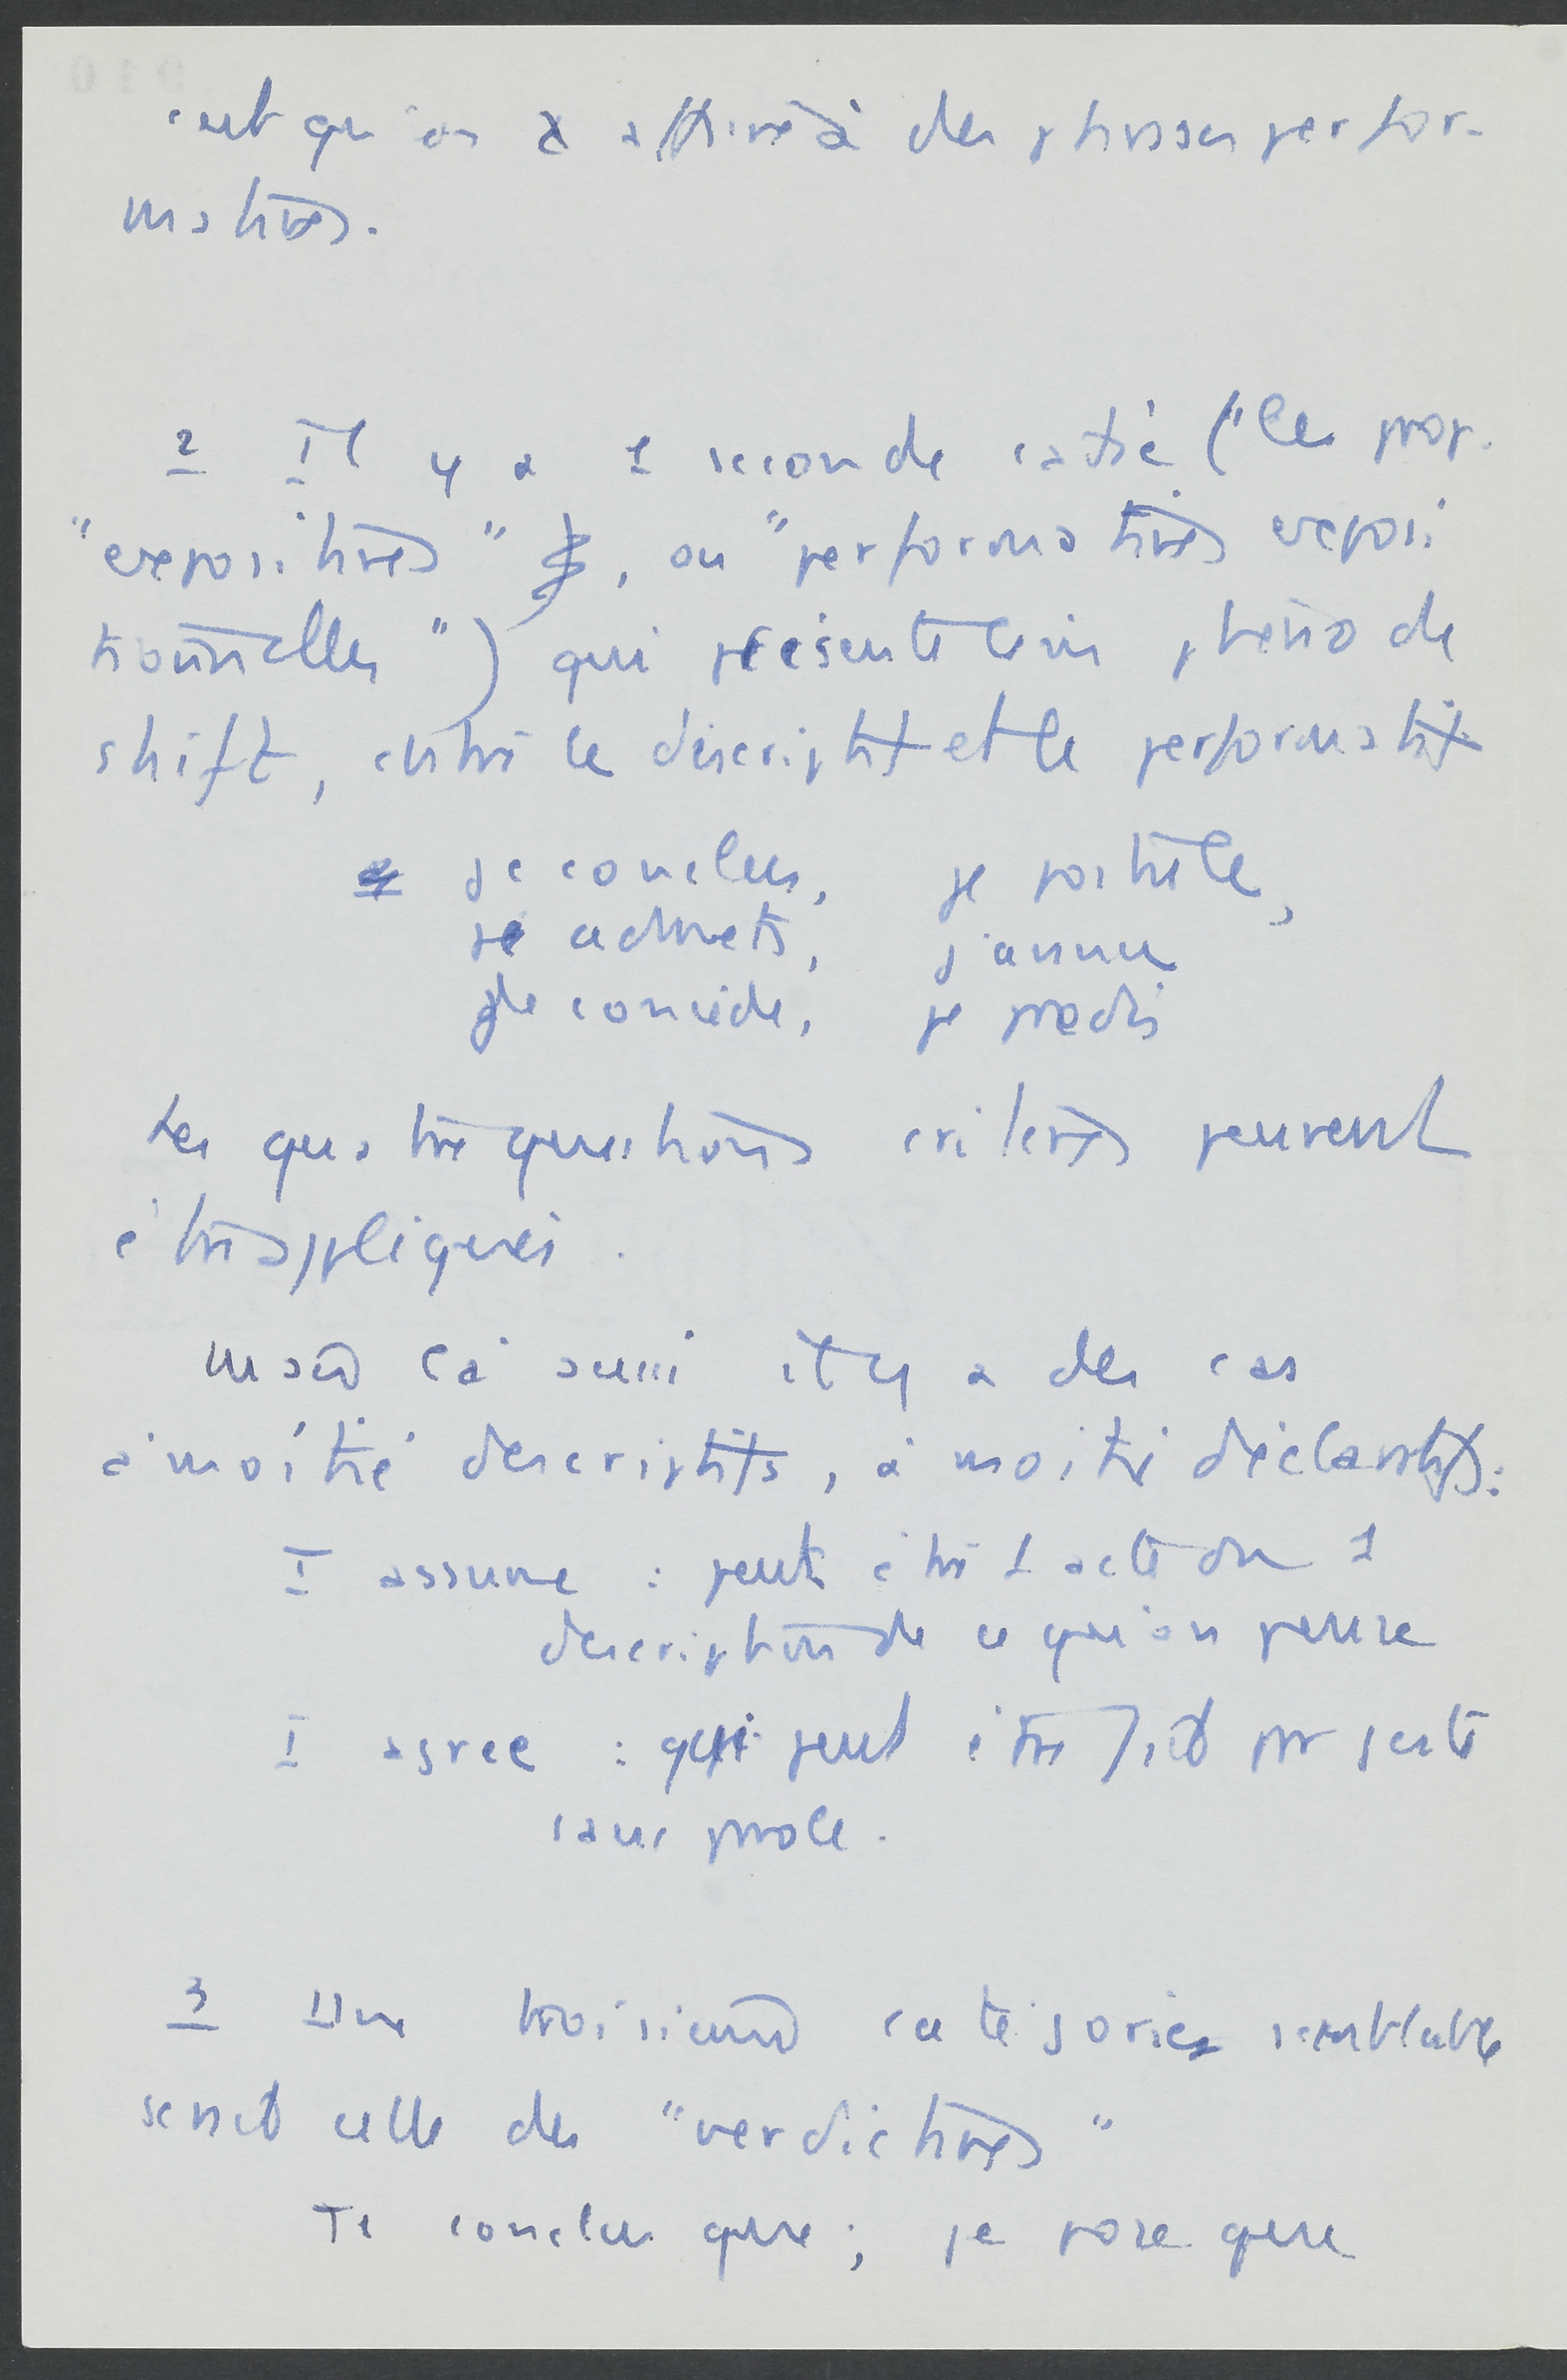 c'est qu'on a affaire à des phrases perfor-
matives.
2 Il y a 1 seconde catie ("les prop.
"expositives", ou "performatives exposi
tionnelles") qui présente le phéno de
shift, entre le descriptif et le performatif
je conclus, je postule,
je admets, j'assume
je concède, je prédis
Les quatre questions critères peuvent
être appliqués.
mais là aussi il y a des cas
à moitié descriptifs, à moitié déclaratifs:
I assume : peut être 1 acte ou 1
description de ce qu'on pense
I agree : qui peut être par geste
sans parole.
3 Une troisième catégorie semblable
serait celle des "verdictives"
Je conclus que ; je pose que